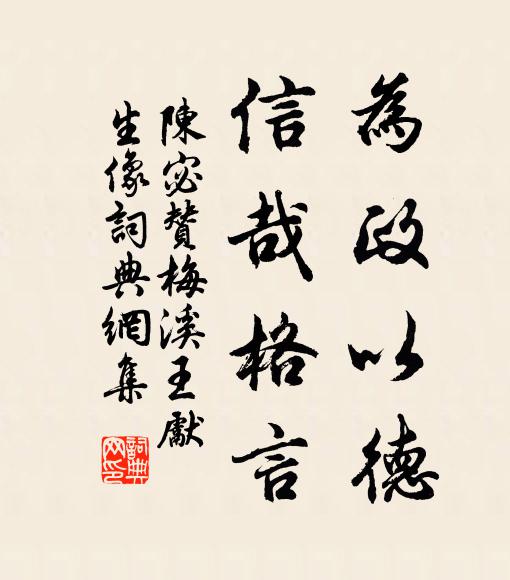 為政以德
信哉格言
陳宓贊梅溪王獻
生像詞典網集
詞典網印